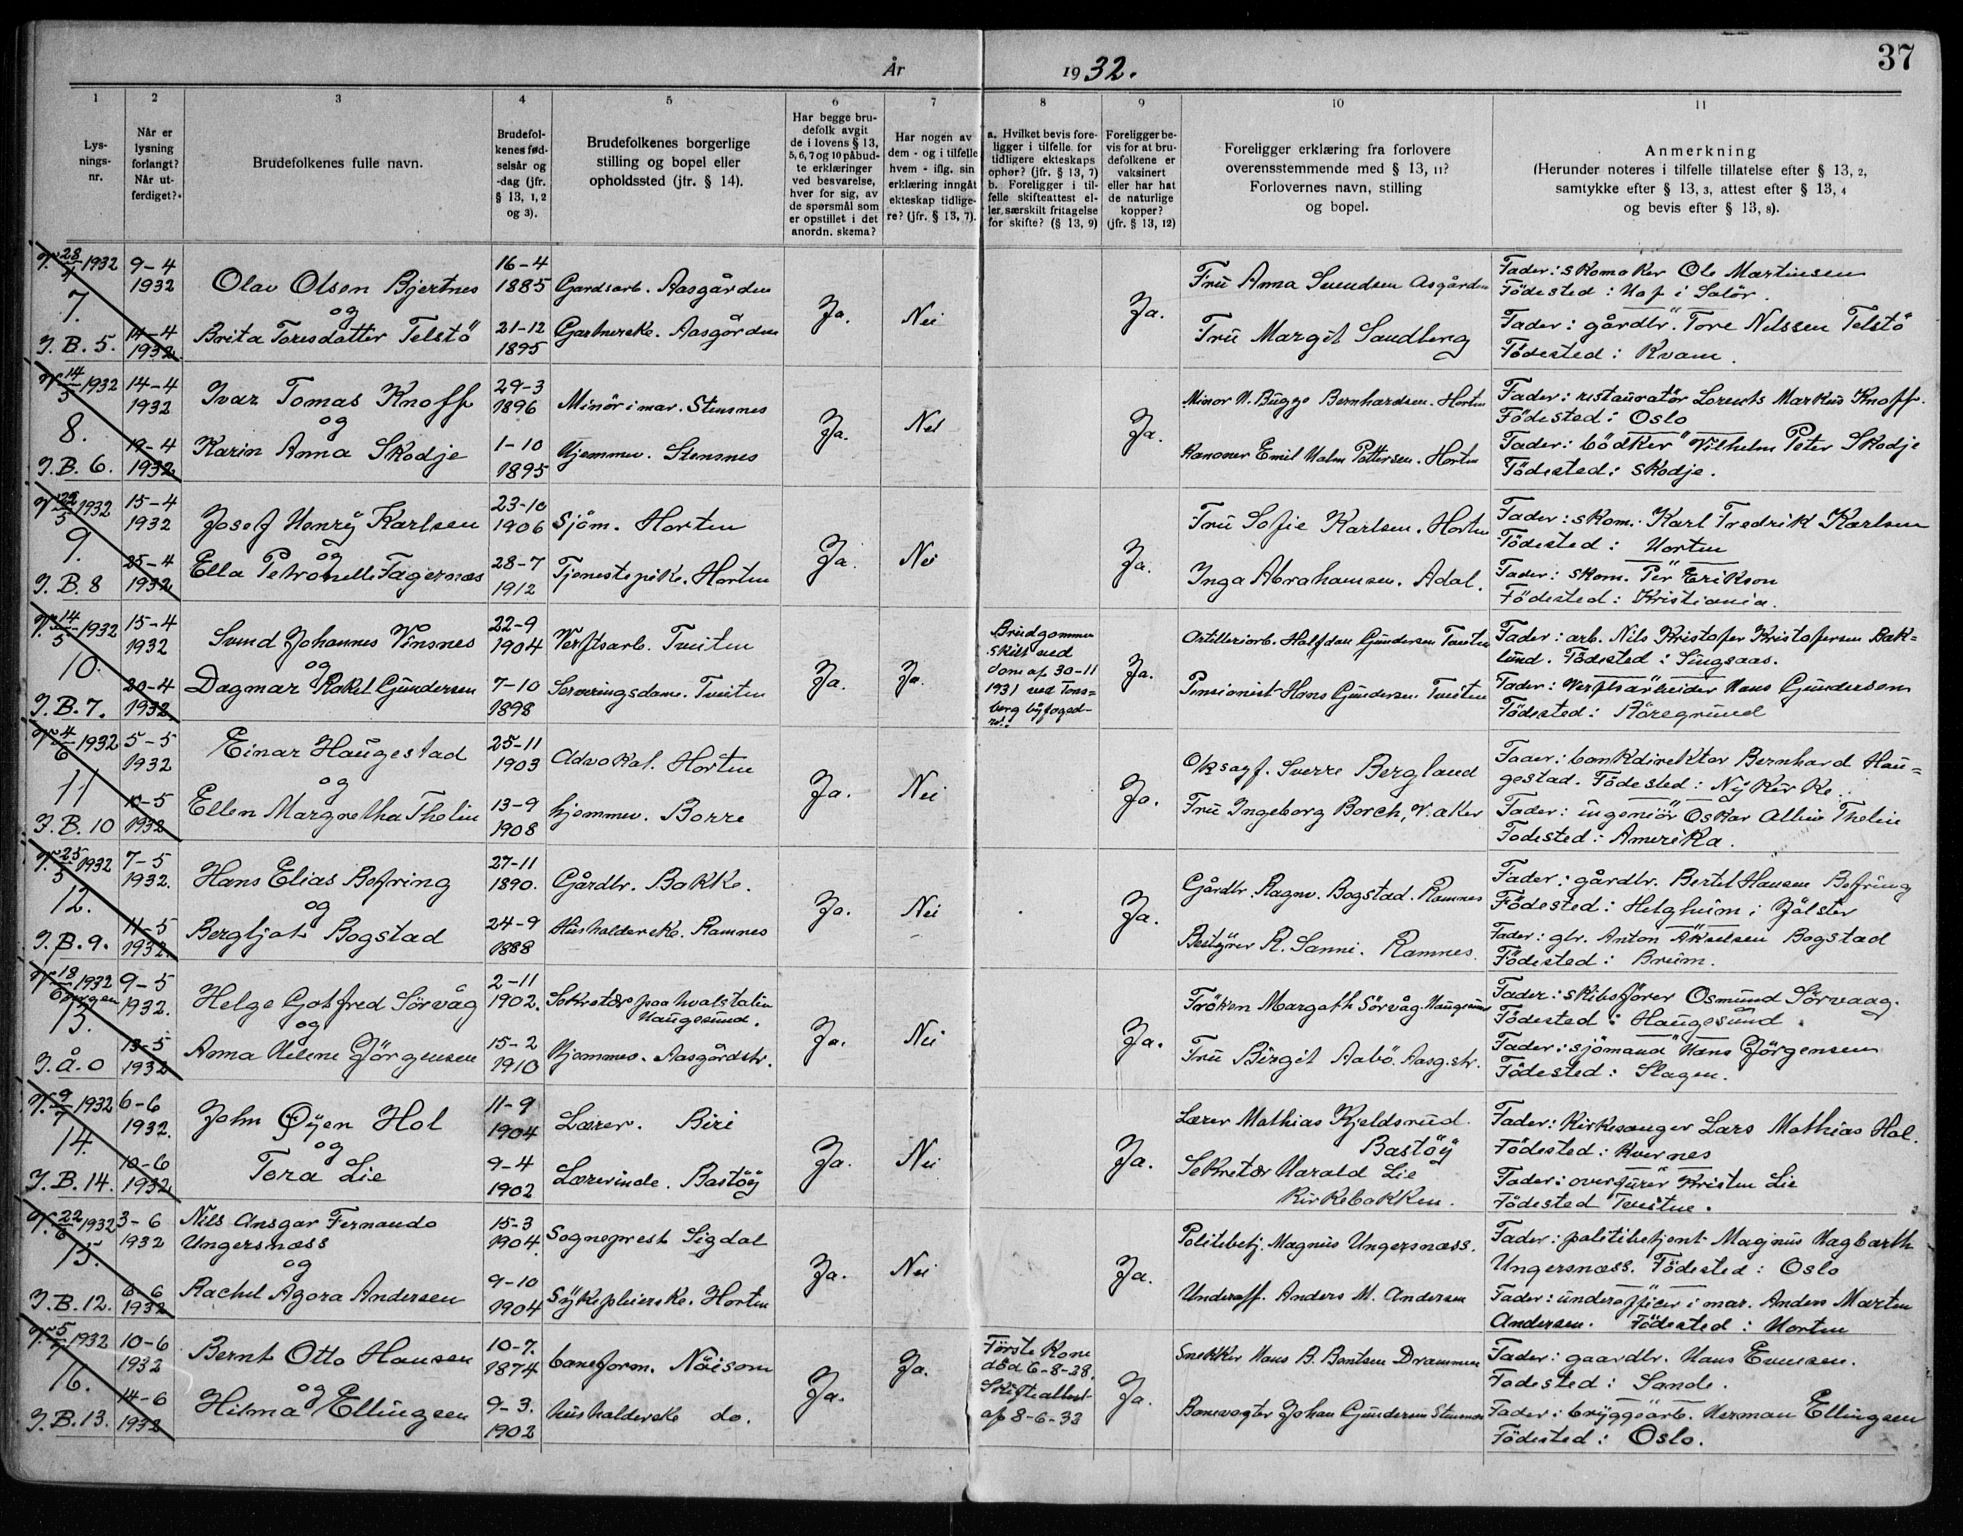 37
År 1932.
1 2 3 4 5 6 7 8 9 10 11
Lys-
nings-
nr.
Når er
lysning
forlangt?
Når ut-
ferdiget?
Brudefolkenes fulle navn.
Brudefol-
kenes fød-
selsår og
-dag (jfr.
§ 13, 1, 2
og 3).
Brudefolkenes borgerlige
stilling og bopel eller
opholdssted (jfr. § 14).
Har begge bru-
defolk avgit
de i lovens § 13,
5, 6, 7 og 10 påbud-
te erklæringer
ved besvarelse,
hver for sig, av
de spørsmål som
er opstillet i det
anordn. skema?
Har nogen av
dem - og i tilfelle
hvem - iflg. sin
erklæring inngåt
ekteskap tidlige-
re? (jfr. § 13, 7).
a. Hvilket bevis fore-
ligger i tilfelle for
tidligere ekteskaps
ophør? (jfr. § 13, 7)
b. Foreligger i til-
felle skifteattest el-
ler særskilt fritagelse
for skifte? (§ 13, 9)
Foreligger be-
vis for at bru-
defolkene er
vaksinert
eller har hat
de naturlige
kopper?
(jfr. § 13, 12)
Foreligger erklæring fra forlovere
overensstemmende med § 13, 11?
Forlovernes navn, stilling
og bopel.
Anmerkning
(Herunder noteres i tilfelle tillatelse efter § 13, 2,
samtykke efter § 13, 3, attest efter § 13, 4
og bevis efter § 13, 8).
V. 23/4 1932
7.
J.B. 5.
9-4
1932
14-4
1932
Olav Olsen Bjertnes
og
Brita Toresdatter Telstö
16-4
1885
21-12
1895
Gardsarb. Aasgården
Gartnerske. Aasgården
Ja.
Nei
Ja.
Fru Anna Svendsen Asgården
Fru Margit Sandberg
Fader: skomaker Ole Martinsen
Födested: Hof i Solör.
Fader: gårdbr. Tore Nilssen Telstö
Födested: Kvam.
V. 14/5 1932
8.
J.B. 6.
14-4
1932
19-4
1932
Ivar Tomas Knoff
og
Karin Anna Skodje
29-3
1896
1-10
1895
Minör i mar. Stensnes
Hjemmev. Stensnes
Ja.
Nei
Ja.
Minor N. Bugge Bernhardsen. Horten
Kanoner Emil Halm Pettersen. Horten
Fader: restauratör Lorents Markus Knoff.
Födested: Oslo
Fader: bödker Vilhelm Peter Skodje
Födested: Skodje.
V. 22/5 1932
9.
J.B. 8
15-4
1932
25-4
1932
Josef Henry Karlsen
og
Ella Petronelle Fagernæs
23-10
1906
28-7
1912
Sjöm. Horten
Tjenestepike. Horten
Ja.
Nei
Ja.
Fru Sofie Karlsen. Horten
Inga Abrahamsen. Adal.
Fader: skom. Karl Fredrik Karlsen
Födested: Horten
Fader: skom. Per Erikson
Födested: Kristiania.
V. 14/5 1932
10.
J.B. 7.
15-4
1932
20-4
1932
Svend Johannes Vinsnes
og
Dagmar Rakel Gundersen
22-9
1904
7-10
1898
Verftsarb. Tveiten
Serveringsdame. Tveiten
Ja.
Ja.
Brudgommen
skilt ved
dom af 30-11
1931 ved Töns-
berg byfoged-
Ja.
Artilleriarb. Halfdan Gundersen Tveiten
Pensionist Hans Gundersen Tveiten
Fader: arb. Nils Kristofer Kristofersen Bak-
lund. Födested: Singsaas.
Fader: Verftsarbeider Hans Gundersen
Födested: Höregrund
V. 4/6 1932
11
J.B. 10
5-5
1932
10-5
1932
Einar Haugestad
og
Ellen Margretha Thelin
25-11
1903
13-9
1908
Advokat. Horten
hjemmev. Borre
Ja.
Nei
Ja.
O.r.sagf. Sverre Bergland
Fru Ingeborg Borch, V. aker
Fader: bankdirektör Bernhard Hau-
gestad. Födested: Nykirke.
Fader: ingeniör Oskar Albin Thelin
Födested: Amerika.
V. 25/5 1932
12.
J.B. 9.
7-5
1932.
11-5
1932.
Hans Elias Befring
og
Bergljot Bogstad
27-11
1890.
24-9
1888
Gårdbr. Bakke.
Husholderske. Ramnes
Ja.
Nei
Ja.
Gårdbr. Ragnv. Bogstad. Ramnes
Bestyrer R. Sanni. Ramnes.
Fader: gårdbr. Bertel Hansen Befring
Födested: Helgheim i Jölster
Fader: gbr. Anton Akselsen Bogstad
Födested: Breim.
V. 18/5 1932
Bergen
13.
J.Å. 0
9-5
1932.
13-5
1932
Helge Gotfred Sörvåg
og
Anna Helene Jörgensen
2-11
1902.
15-2
1910
Sekretær paa hvalstation
Haugesund.
Hjemmev. Aasgårdstr.
Ja.
Nei
Ja.
Fröken Margath Sörvåg Haugesund
Fru Birgit Aabö. Aasg.str.
Fader: skibsförer Osmund Sörvaag.
Födested: Haugesund.
Fader: sjömand Hans Jörgensen
Födested: Slagen.
V. 9/7 1932
14.
J.B. 14.
6-6
1932.
10-6
1932
John Öyen Hol
og
Tora Lie
11-9
1904
9-4
1902
Lærer. Biri
Lærerinde. Bastöy
Ja.
Nei
Ja.
Lærer Mathias Kjeldsrud.
Bastöy
Sekretær Harald Lie
Kirkebakken.
Fader: Kirkesanger Lars Mathias Hol.
Födested: Kvernes
Fader: overfurér Kristen Lie
Födested Tveiten.
V. 22/6 1932
15.
J.B. 12.
3-6
1932
6-6
1932
Nils Ansgar Fernando
Ungersnæss
og
Rachel Agora Andersen
15-3
1904.
9-10
1904
Sogneprest Sigdal
Sykepleierske. Horten
Ja.
Nei
Ja.
Politibetj. Magnus Ungersnæss.
Underoff. Anders M. Andersen
Fader: politibetjent Magnus Hagbarth
Ungersnæss. Födested: Oslo
Fader: underofficer i mar. Anders Marten
Andersen. Födested: Horten
V. 5/7 1932
16.
J.B. 13.
10-6
1932
14-6
1932
Bernt Otto Hansen
og
Hilma Ellingsen
10-7.
1874
9-3.
1902
baneform. Nöisom
husholderske do.
Ja.
Ja.
Förste Kone
död 6-8-28.
Skifteattest
af 8-6-32
Ja.
Snekker Hans B. Bentsen Drammen
Banevogter Johan Gundersen Stensnes
Fader: gaardbr. Hans Evensen.
Födested: Sande.
Fader: bryggearb. Herman Ellingsen
Födested: Oslo.